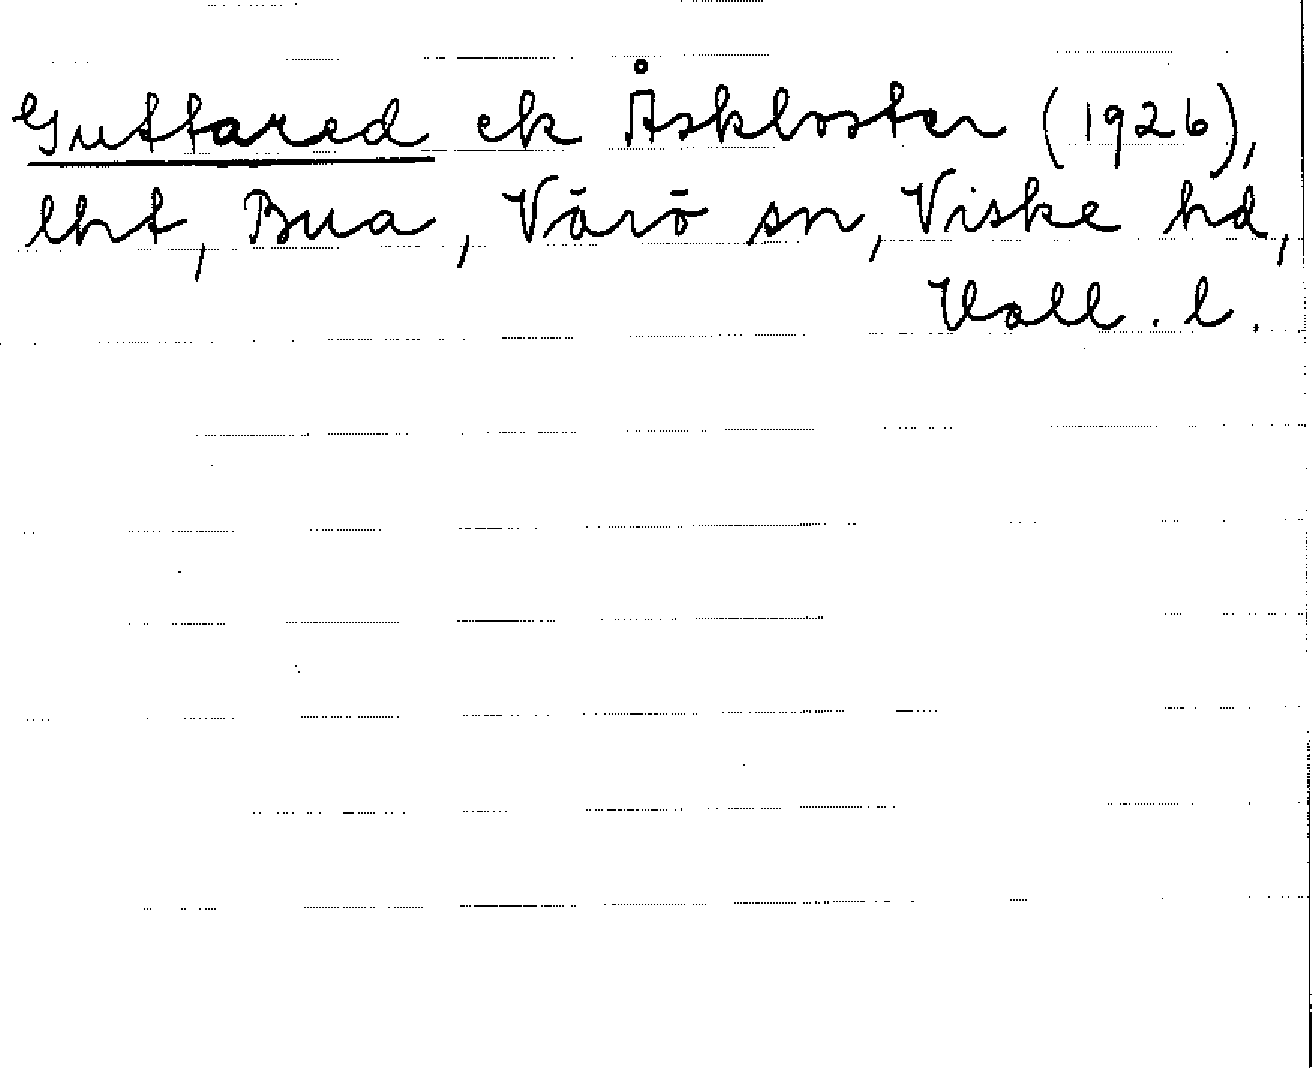 Guttared ek Åskloster (1926),
lht, Bua, Värö sn, Viske hd,
Hall. l.